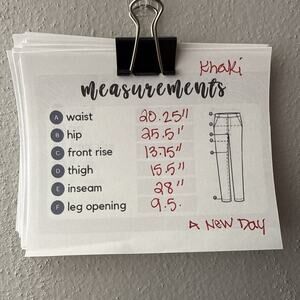 Khaki
measurements
A waist 20.25"
B hip 25.5"
C front rise 13.75"
D thigh 15.5"
E inseam 28"
F leg opening 9.5.
A New Day